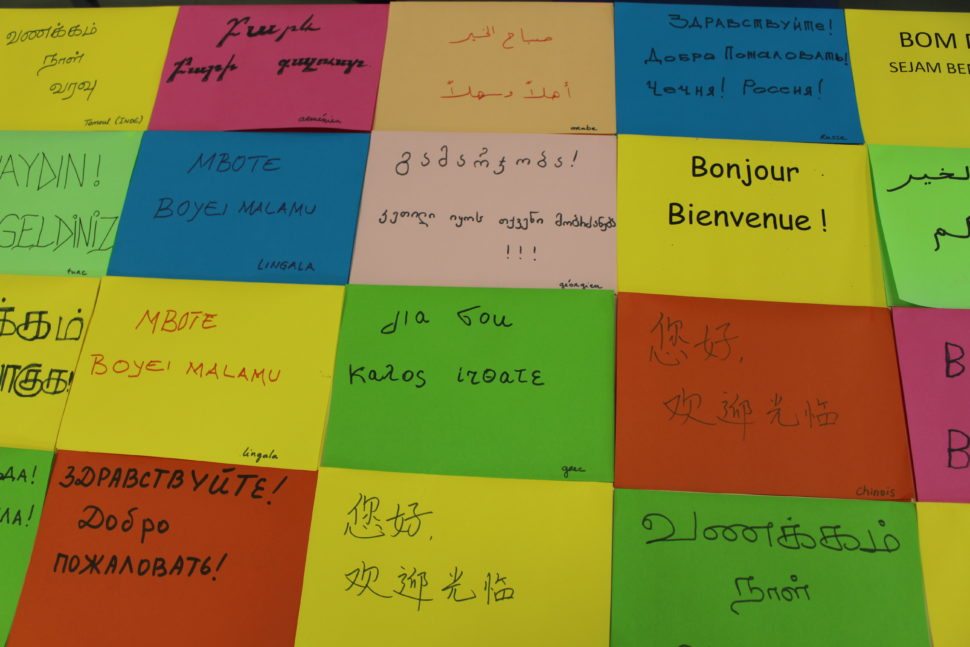 வணக்கம்
நான்
வரவு
Tamoul (INDE)
Բարև
Բարի գալուստ
arménien
صباح الخير
أهلاً وسهلاً
arabe
Здравствуйте!
Добра Пожаловать!
Чечня! Россия!
russe
BOM
SEJAM BE
AYDIN!
GELDİNİZ
turc
MBOTE
BOYEI MALAMU
LINGALA
გამარჯობა!
კეთილი იყოს თქვენი მობრძანება
!!!
géorgien
Bonjour
Bienvenue !
لخير
க்கம்
MBOTE
BOYEI MALAMU
lingala
για σου
καλος ιτθατε
grec
您好,
欢迎光临
chinois
B
B
ДА!
ЛА!
ЗДРАВСТВУЙТЕ!
Добро
ПОЖАЛОВАТЬ!
您好,
欢迎光临
வணக்கம்
நான்